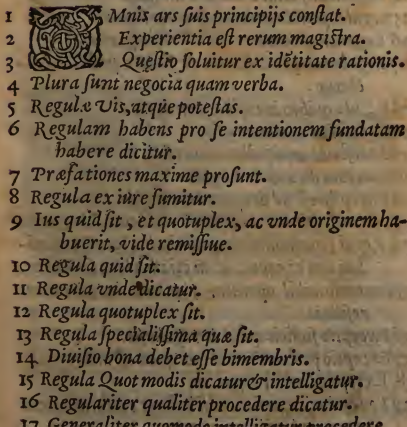 1 OMnis ars ſuis principijs conſtat.
2 Experientia eſt rerum magiſtra.
3 Queſtio ſoluitur ex idẽtitate rationis.
4 Plura ſunt negocia quam verba.
5 Regulæ Vis, atque poteſtas.
6 Regulam habens pro ſe intentionem fundatam
habere dicitur.
7 Præfationes maxime proſunt.
8 Regula ex iure ſumitur.
9 Ius quid ſit, et quotuplex, ac vnde originem ha-
buerit, vide remiſſiue.
10 Regula quid ſit.
11 Regula vnde dicatur.
12 Regula quotuplex ſit.
13 Regula ſpecialiſſima quæ ſit.
14 Diuiſio bona debet eſſe bimembris.
15 Regula Quot modis dicatur & intelligatur.
16 Regulariter qualiter procedere dicatur.
17 Generaliter quomodo intelligatur procedere